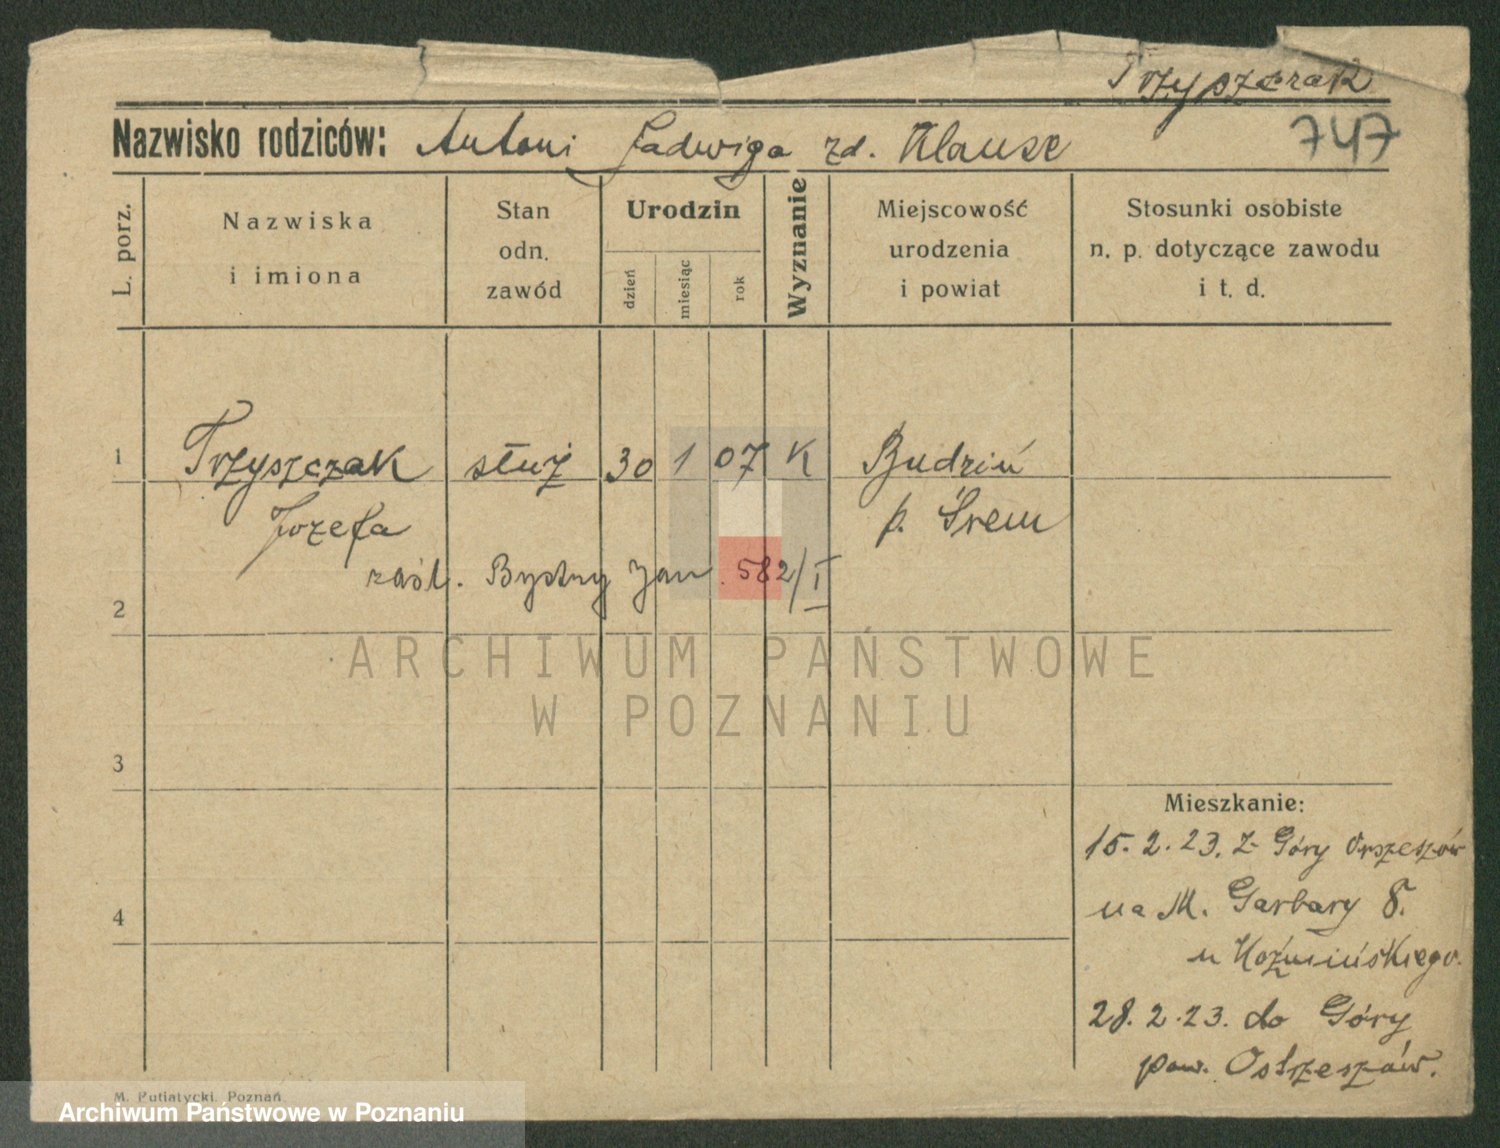 Trzyszczak
Nazwisko rodziców: Antoni Jadwiga zd. Klause
747
L. porz.
Nazwiska
i imiona
Stan
odn.
zawód
Urodzin
dzień
miesiąc
rok
Wyznanie
Miejscowość
urodzenia
i powiat
Stosunki osobiste
n. p. dotyczące zawodu
i t. d.
1 Trzyszczak służ 30 1 07 K Budziń
Józefa p. Śrem
zaśl. Bystry Jan 582/I
2
ARCHIWUM PAŃSTWOWE
W POZNANIU
3
Mieszkanie:
15. 2. 23. z Góry Orszeszów
4 na M. Garbary 8.
u Koźmińskiego.
28. 2. 23. do Góry
pow. Ostrzeszów.
M. Putiatycki. Poznań.
Archiwum Państwowe w Poznaniu